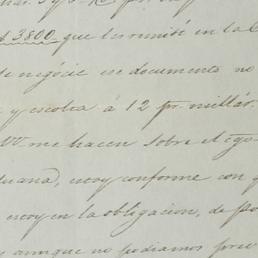 $ 3800 que les remití en la C
de negócio ese documento no
y escolta á 12 pr. millar.
Vs. me hacen sobre el ego
duana, estoy conforme con q
estoy en la obligacion, de po
aunque no podiamos prev